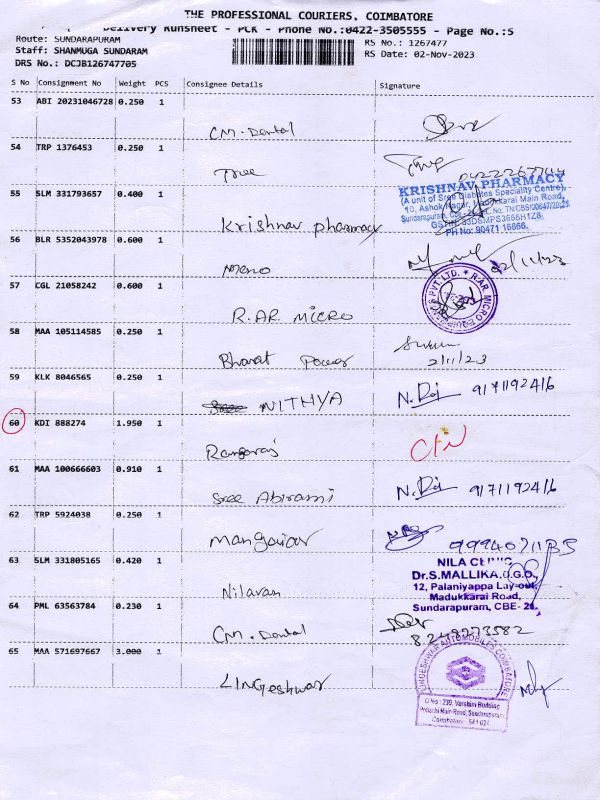 THE PROFESSIONAL COURIERS, COIMBATORE
Delivery Runsheet - PCK - Phone No.:0422-3505555 - Page No.:5
Route: SUNDARAPURAM
RS No.: 1267477
Staff: SHANMUGA SUNDARAM
RS Date: 02-Nov-2023
DRS No.: DCJB126747705
S No Consignment No Weight PCS Consignee Details Signature
53 ABI 20231046728 0.250 1
CM. Dental
54 TRP 1376453 0.250 1
Tree
55 SLM 331793657 0.400 1
KRISHNAV PHARMACY
(A unit of Sree Diabetes Speciality Centre),
10, Ashok Nagar, Madukkarai Main Road,
Sundarapuram,
PH No: 90471 16666.
Krishnav pharmacy
56 BLR 5352043978 0.600 1
02/11/23
57 CGL 21058242 0.600 1
R.AR MICRO
58 MAA 105114585 0.250 1
Bharat Power
2/11/23
59 KLK 8046565 0.250 1
NITHYA
N. Raj 9171192416
60 KDI 888274 1.950 1
Rangaraj
61 MAA 100666603 0.910 1
Sree Abirami
N. Raj 9171192416
62 TRP 5924038 0.250 1
Mangaiar
63 SLM 331805165 0.420 1
NILA CLINIC
Dr.S.MALLIKA,D.G.O.,
12, Palaniyappa Lay-out,
Madukkarai Road,
Sundarapuram, CBE- 24.
Nilavan
64 PML 63563784 0.230 1
CM. Dental
8248273582
65 MAA 571697667 3.000 1
LINGESHWAR AUTOMOBILES COIMBATORE
D.No : 239, Varshini Building
Pollachi Main Road, Sundarapuram
Coimbatore - 641 024.
LINGeshwar